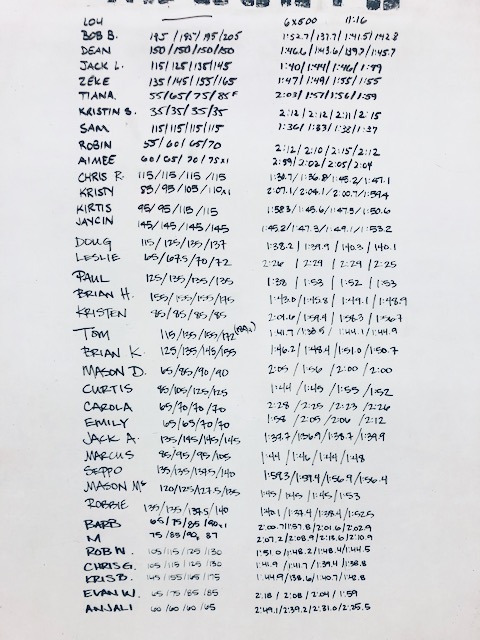 LOU 6x500 11:16
BOB B. 195/195/195/205 1:52.7/133.7/1:41.5/142.8
DEAN 150/150/150/150 1:46.6/1:43.6/139.7/1:45.7
JACK L. 115/125/135/145 1:40/1:44/1:46/1:49
ZEKE 135/145/155/165 1:47/1:49/1:55/1:55
TIANA 55/65/75/85F 2:03/1:57/1:56/1:59
KRISTIN S. 35/35/35/35 2:12/2:12/2:11/2:15
SAM 115/115/115/115 1:36/1:33/1:38/1:37
ROBIN 55/60/65/70 2:12/2:10/2:15/2:12
AIMEE 60/65/70/75x1 2:59/2:02/2:05/2:04
CHRIS R. 115/115/115/115 1:38.7/1:36.8/1:45.2/1:47.1
KRISTY 85/95/105/110x1 2:07.1/2:04.1/2:00.7/1:59.4
KIRTIS 95/95/115/115 1:58.3/1:45.6/1:47.3/1:50.6
JAYCIN 145/145/145/145 1:45.2/1:47.3/1:49.1/1:53.2
DOUG 115/125/135/137 1:38.2/1:39.9/140.3/140.1
LESLIE 65/67.5/70/72 2:26/2:29/2:29/2:25
PAUL 125/135/135/135 1:38/1:53/1:52/1:53
BRIAN H. 155/155/155/175 1:43.0/1:45.8/1:49.1/1:48.9
KRISTEN 85/85/85/85 2:01.6/1:59.4/1:58.3/1:56.7
TOM 115/135/155/172 1:41.7/1:38.5/1:44.1/1:44.9
BRIAN K. 125/135/145/155 1:46.2/1:48.4/1:51.0/1:50.7
MASON D. 65/85/90/90 2:05/1:56/2:00/2:00
CURTIS 85/105/125/125 1:44/1:45/1:55/1:52
CAROLA 65/70/70/70 2:28/2:25/2:23/2:26
EMILY 65/65/70/70 1:58/2:05/2:06/2:12
JACK A. 135/145/145/145 1:37.7/136.9/1:38.7/1:39.9
MARCUS 85/95/95/105 1:44/1:46/1:44/1:48
SEPPO 135/135/137.5/140 1:59.3/1:59.4/1:56.9/1:56.4
MASON Mc 120/125/127.5/135 1:45/1:45/1:45/1:53
ROBBIE 135/135/137.5/140 1:40.1/1:37.4/1:38.4/1:52.5
BARB 65/75/85/90x1 2:00.7/1:57.8/2:01.6/2:02.9
M 75/85/90/87 2:07.2/2:08.9/2:13.6/2:10.9
ROB W. 105/115/125/130 1:51.0/1:48.2/1:48.4/1:44.5
CHRIS G. 105/115/125/130 1:41.9/1:41.7/1:39.4/1:38.8
KRIS B. 145/155/165/175 1:44.9/138.6/1:40.7/1:42.8
EVAN W. 65/75/85/85 2:18/2:08/2:04/1:59
ANJALI 60/60/60/65 2:49.1/2:39.2/2:31.0/2:25.5